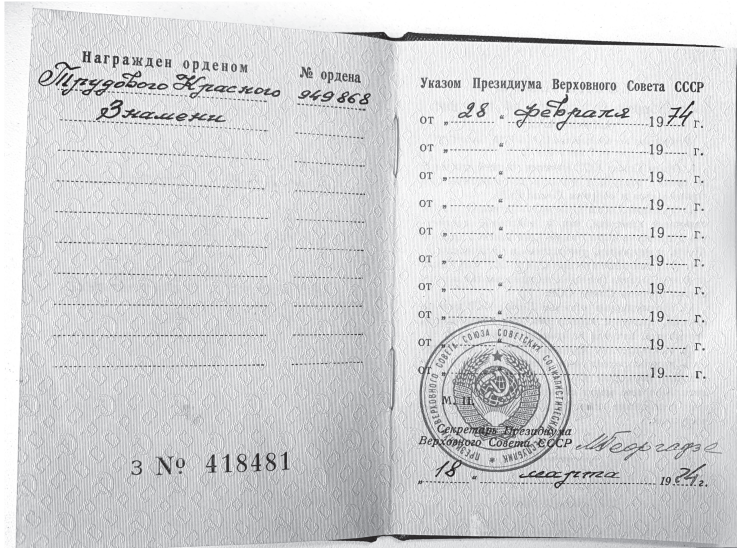 Награжден орденом
№ ордена
Трудового Красного
949868
Знамени
З № 418481
Указом Президиума Верховного Совета СССР
от „ 28 “ февраля 1974 г.
от „ “ 19 г.
от „ “ 19 г.
от „ “ 19 г.
от „ “ 19 г.
от „ “ 19 г.
от „ “ 19 г.
от „ “ 19 г.
от „ “ 19 г.
от „ “ 19 г.
М. П.
ПРЕЗИДИУМ ВЕРХОВНОГО СОВЕТА СОЮЗА СОВЕТСКИХ СОЦИАЛИСТИЧЕСКИХ РЕСПУБЛИК
Секретарь Президиума
Верховного Совета СССР
МГеоргадзе
„ 18 “ марта 1974 г.